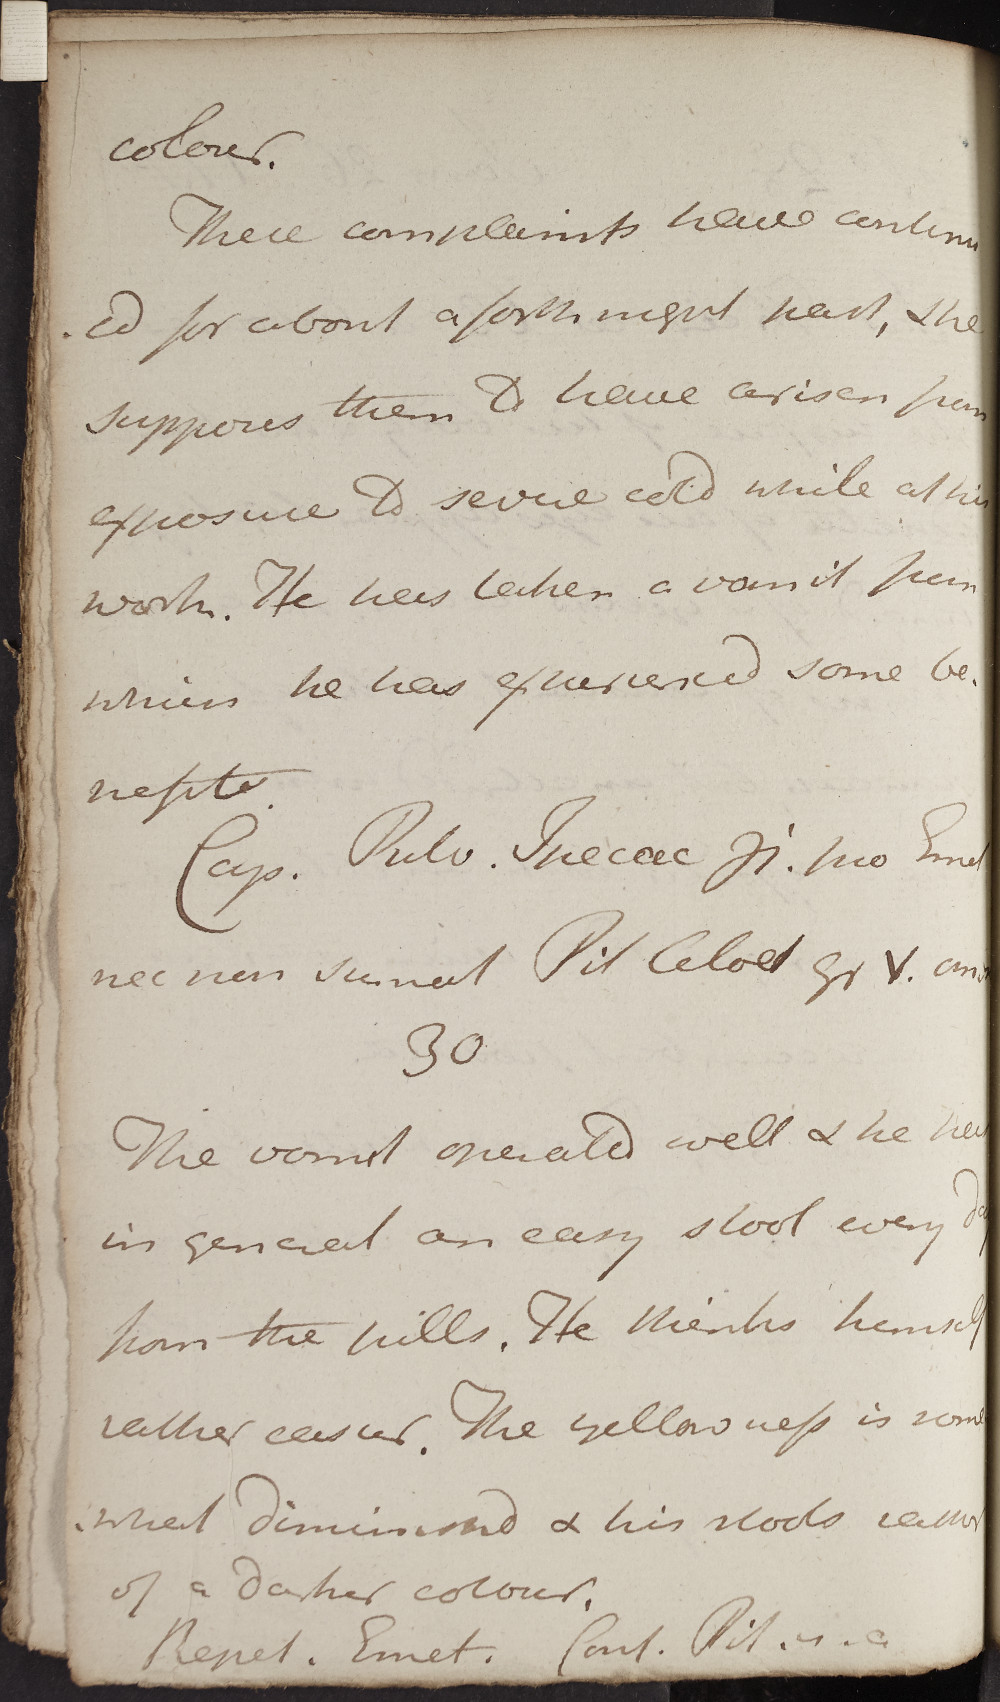 colour.
These complaints have continu
.ed for about a forthnight past, & he
supposes them to have arisen from
exposure to severe cold while at his
work. He has taken a vomit from
which he has experienced some be.
nefite.
Cap. Pulv. Ipecac ʒi. pro Emet
nec non sumat Pil Aloet gr V.
30
The vomit operated well & he has
in general an easy stool every day
from the pills. He thinks himself
rather easier. The yellowness is some
.what diminished & his stools rather
of a darker colour.
Repet. Emet. Cont. Pil.